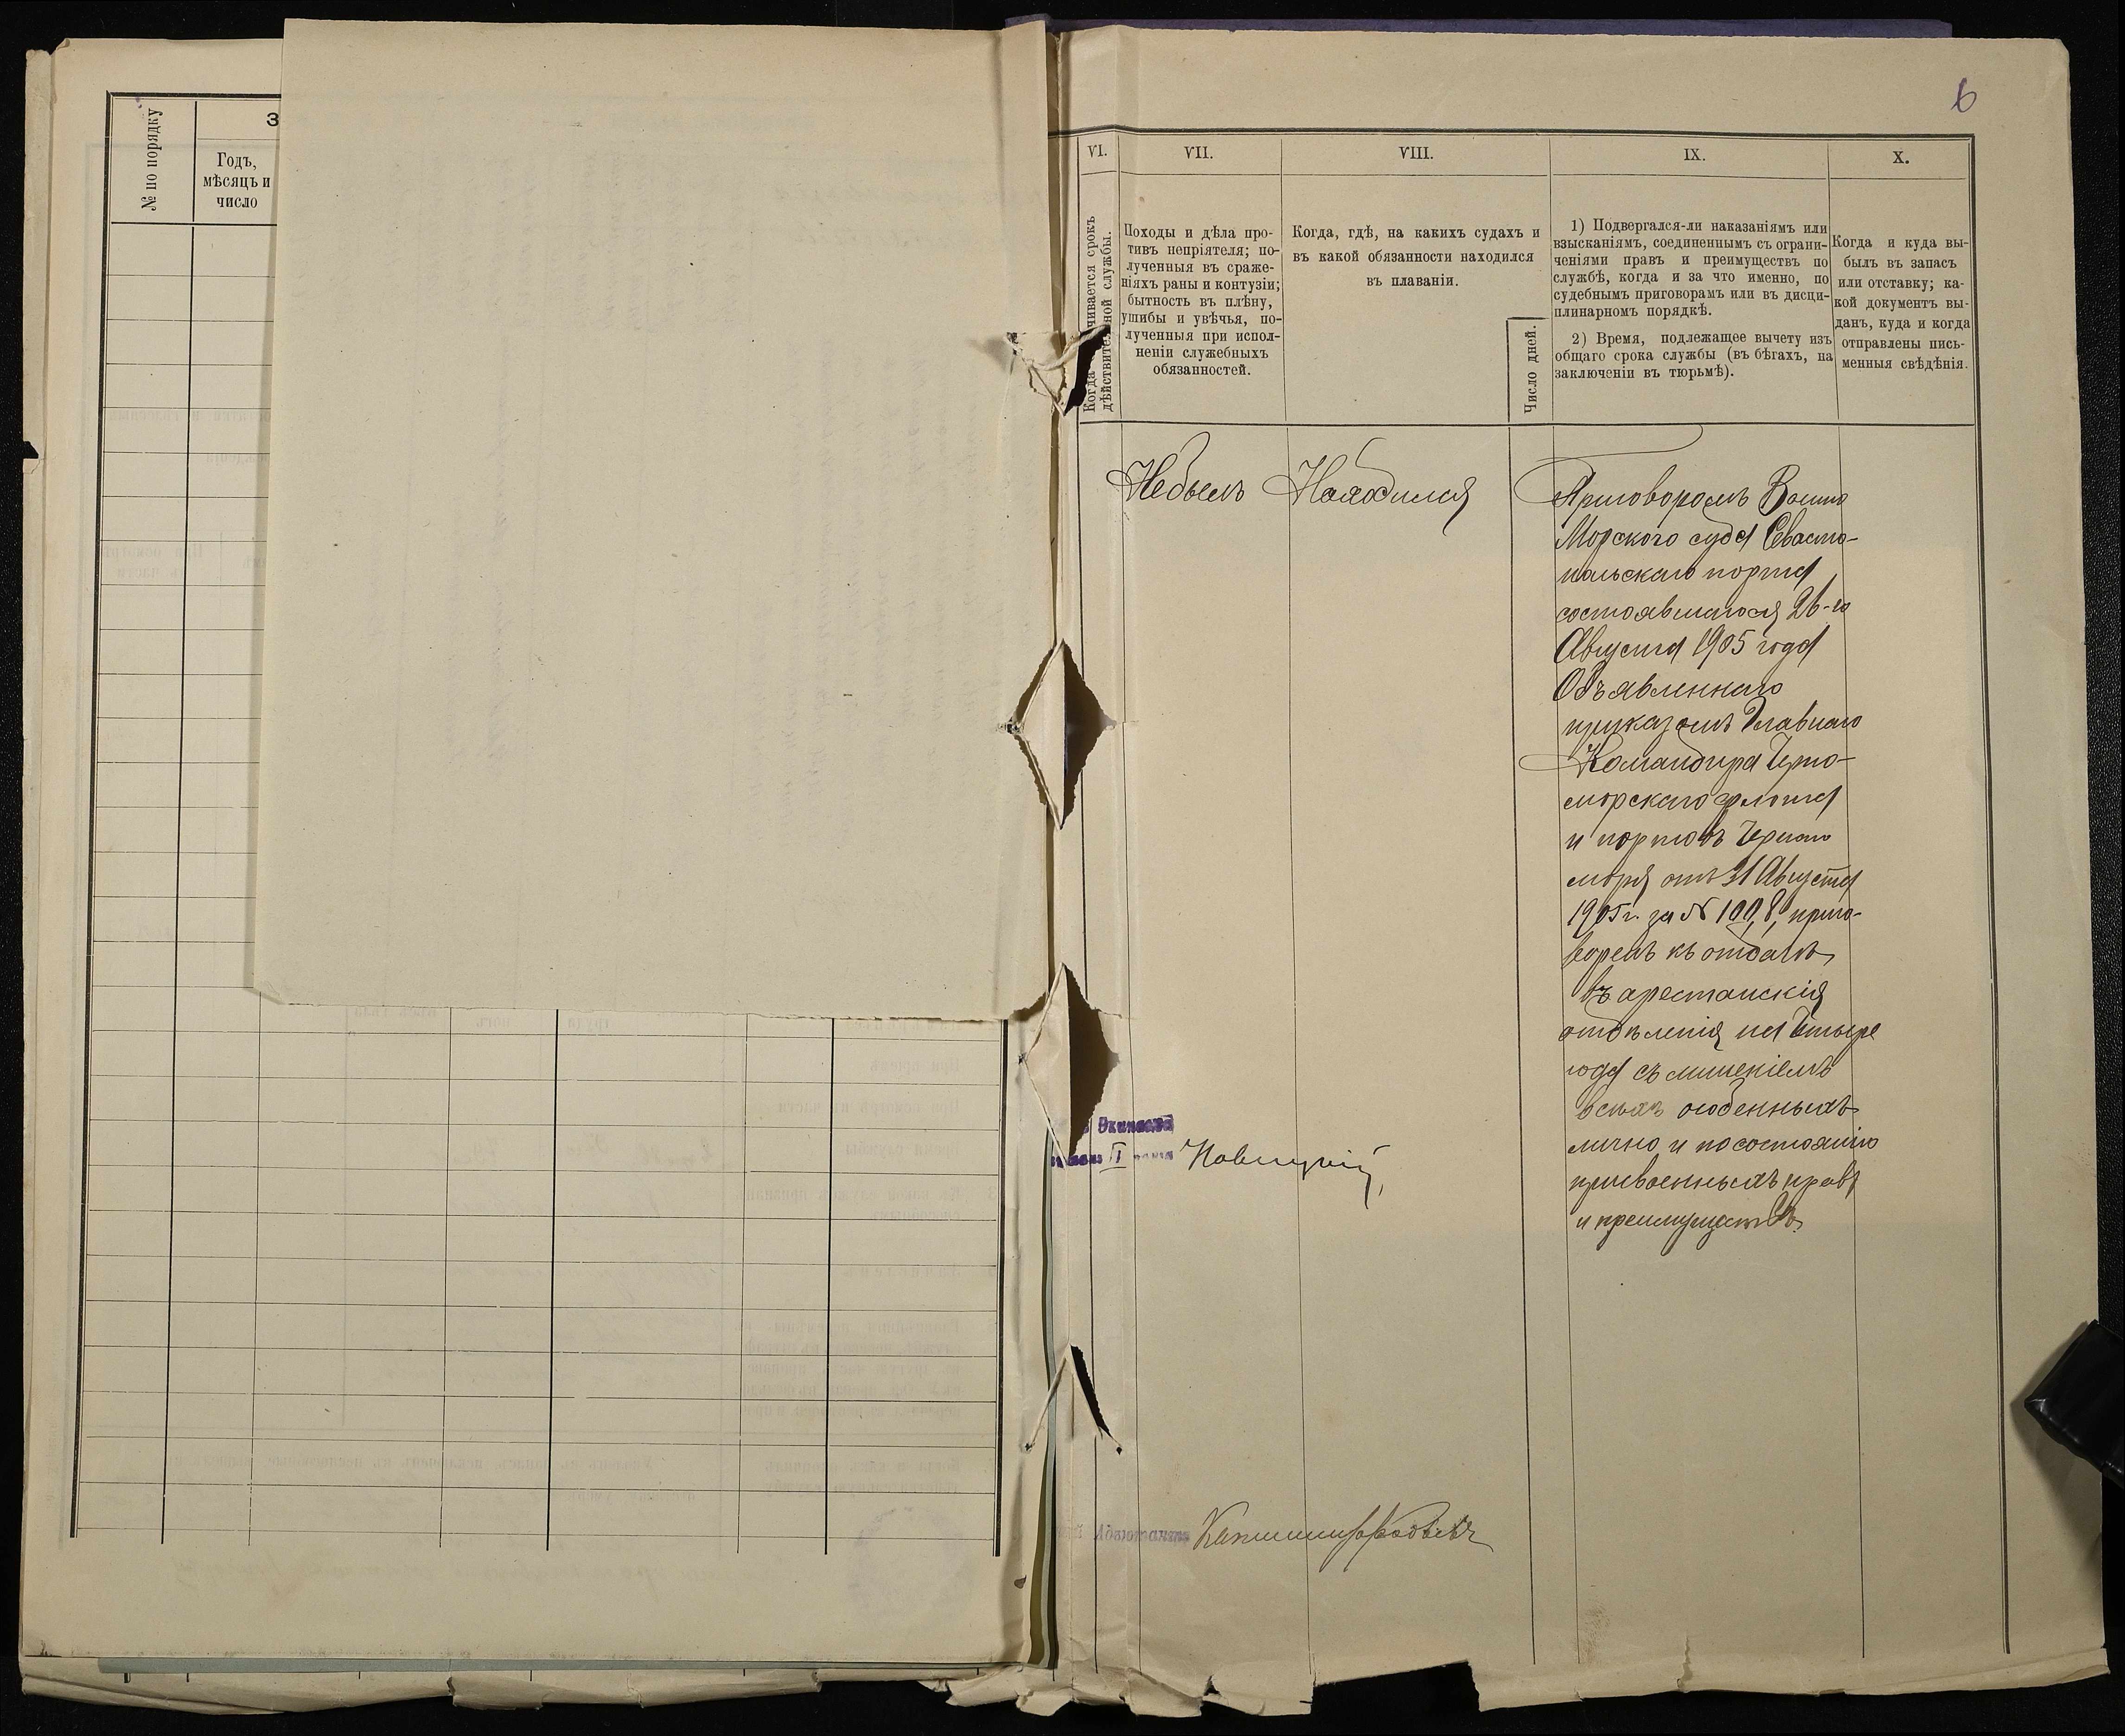 6
№ по порядку
З
Годъ,
мѣсяцъ и
число
VI.
VII.
VIII.
IX.
X.
дѣйствительной службы.
Походы и дѣла про-
тивъ непріятеля; по-
лученныя въ сраже-
ніяхъ раны и контузіи;
бытность въ плѣну,
ушибы и увѣчья, по-
лученныя при испол-
неніи служебныхъ
обязанностей.
Когда, гдѣ, на какихъ судахъ и
въ какой обязанности находился
въ плаваніи.
Число дней.
1) Подвергался-ли наказаніямъ или
взысканіямъ, соединеннымъ съ ограни-
ченіями правъ и преимуществъ по
службѣ, когда и за что именно, по
судебнымъ приговорамъ или въ дисци-
плинарномъ порядкѣ.
2) Время, подлежащее вычету изъ
общаго срока службы (въ бѣгахъ, на
заключеніи въ тюрьмѣ).
Когда и куда вы-
былъ въ запасъ
или отставку; ка-
кой документъ вы-
данъ, куда и когда
отправлены пись-
менныя свѣдѣнія.
Небылъ
Находился
Приговоромъ Военно
Морского суда Севасто-
польскаго порта
состоявшагося 26-го
Августа 1905 года
Объявленнаго
приказомъ Главнаго
Командира Черно-
морскаго флота
и портовъ Чернаго
моря отъ 31 Августа
1905 г. за № 1008, приго-
воренъ къ отдачѣ
въ арестанскія
отдѣленія на Четыре
года съ лишеніемъ
всѣхъ особенныхъ
лично и по состоянію
присвоенныхъ правъ
и преимуществъ
Экипажа
I ранга
Новицкій
Адъютантъ